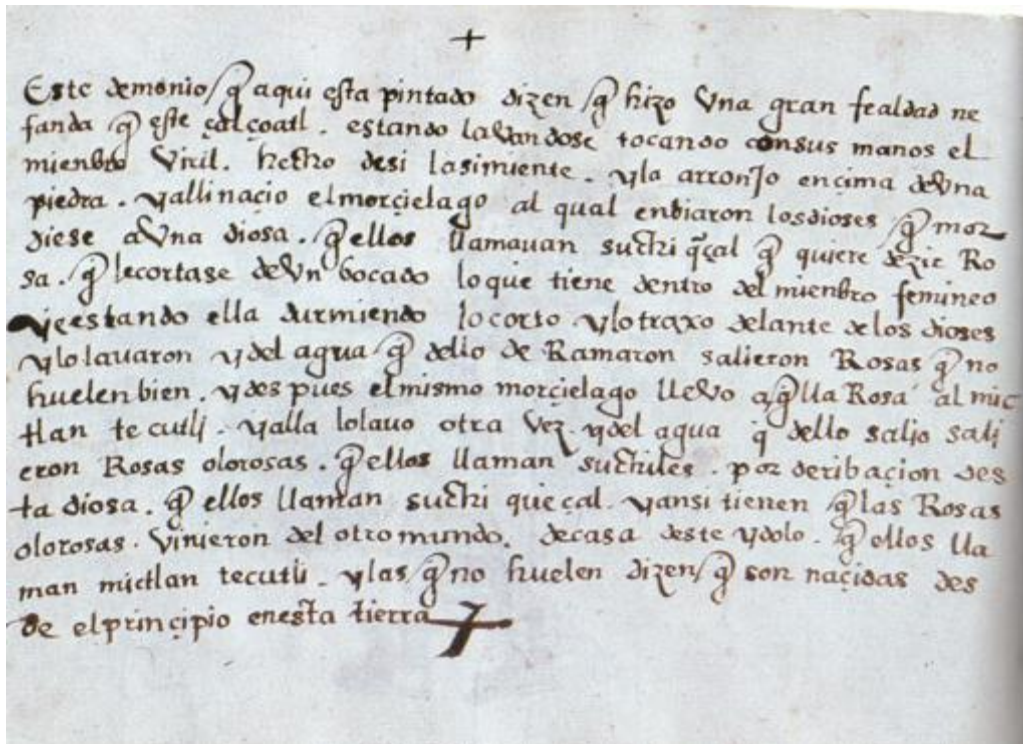 +
Este demonio / q̃ aqui esta pintado dizen / q̃ hizo vna gran fealdad ne
fanda q̃ este çalçoatl . estando lavandose tocando consus manos el
mienbro viril. hecho desi lasimiente . yla arronjo ençima devna
piedra . yallinaçio elmorçielago al qual enbiaron losdioses / q̃ mor
diese avna diosa . / q̃ ellos llamauan suchi q̃çal q̃ quiere dezir Ro
sa . q̃ lecortase devn bocado loque tiene dentro del mienbro femineo
yestando ella durmiendo locorto . ylotraxo delante delos dioses
ylolauaron ydel agua / q̃ dello de Ramaron salieron Rosas q̃ no
huelenbien . ydes pues elmismo morçielago llevo aq̃lla Rosa al mic
tlan te cutli . yalla lolauo otra vez . ydel agua q̃ dello salio sali
eron Rosas olorosas . q̃ ellos llaman suchiles . por deribaçion des
ta diosa . q̃ ellos llaman suchi queçal . yansi tienen / q̃ las Rosas
olorosas . vinieron del otro mundo . decasa deste ydolo . q̃ ellos lla
man mictlan tecutli . ylas / q̃ no huelen dizen / q̃ son naçidas des
de elprinçipio enesta tierra